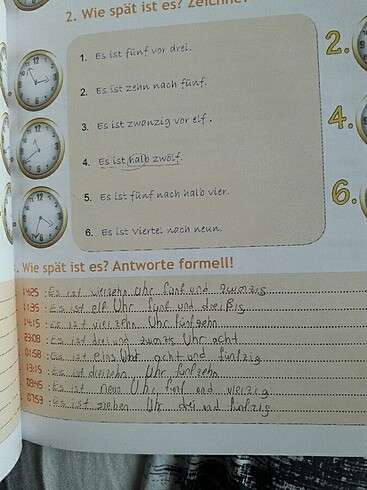 2. Wie spät ist es? Zeichne!
1. Es ist fünf vor drei.
2. Es ist zehn nach fünf.
3. Es ist zwanzig vor elf.
4. Es ist halb zwölf.
5. Es ist fünf nach halb vier.
6. Es ist Viertel nach neun.
2.
4.
6.
Wie spät ist es? Antworte formell!
14:25 : Es ist vierzehn Uhr fünf und zwanzig
11:35 : Es ist elf Uhr fünf und dreißig
14:15 : Es ist vierzehn Uhr fünfzehn
23:08 : Es ist drei und zwanzig Uhr acht
01:58 : Es ist eins Uhr acht und fünfzig
13:15 : Es ist dreizehn Uhr fünfzehn
09:45 : Es ist neun Uhr fünf und vierzig
07:53 : Es ist sieben Uhr drei und fünfzig